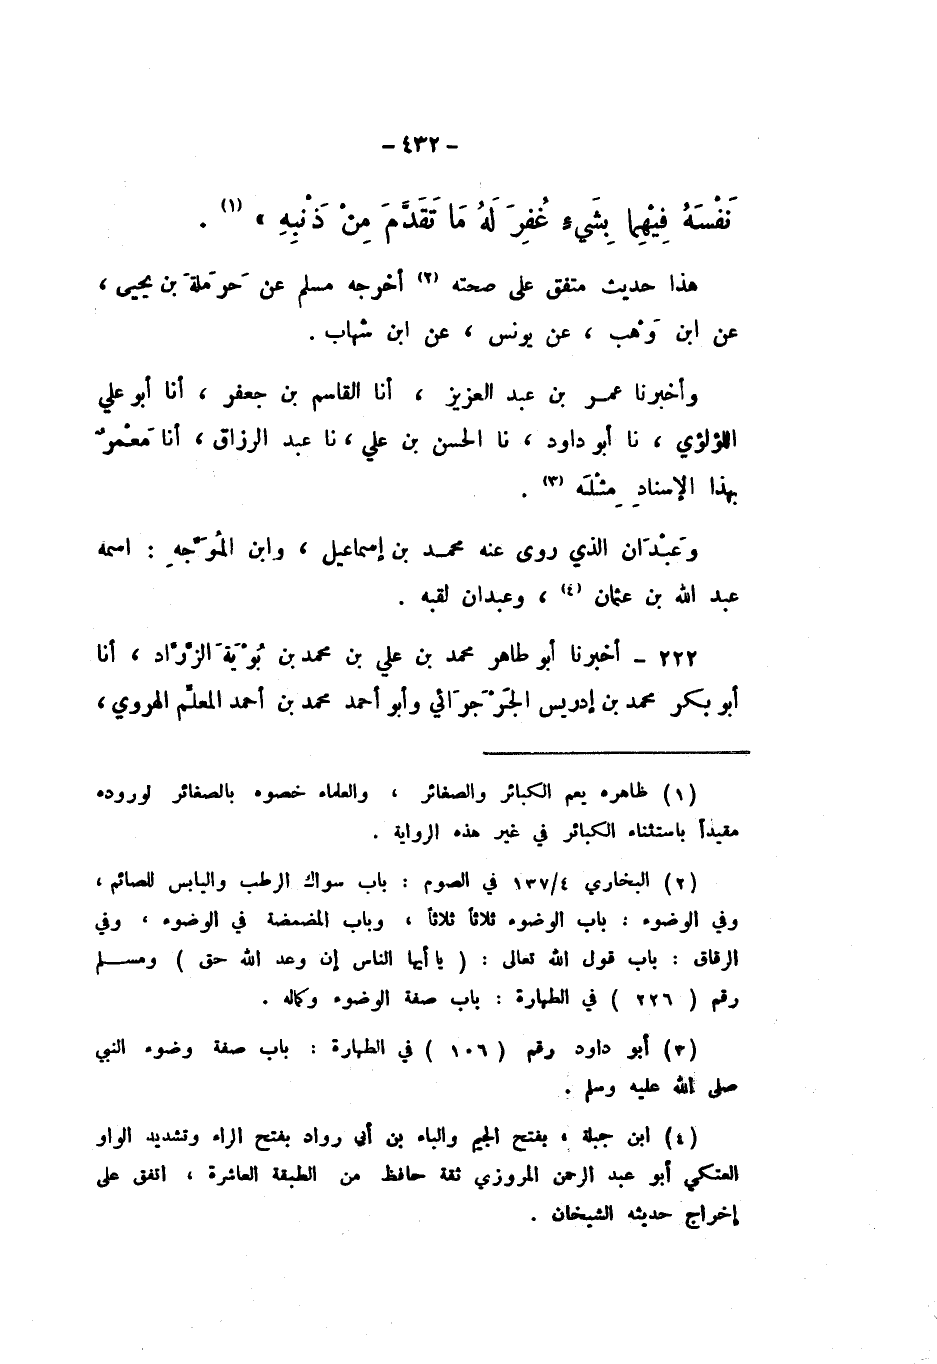 - ٤٣٢ -
نَفْسَهُ فِيْهِما بِشَيءٍ غُفِرَ لَهُ مَا تَقَدَّمَ مِنْ ذَنْبِهِ » (١) .
هذا حديث متفق على صحته (٢) أخرجه مسلم عن حَرمَلةَ بن يحيى ،
عن ابن وَهْب ، عن يونس ، عن ابن شهاب .
وأخبرنا عمر بن عبد العزيز ، أنا القاسم بن جعفر ، أنا أبو علي
اللؤلؤي ، نا أبو داود ، نا الحسن بن علي ، نا عبد الرزاق ، أنا مَعْمرٌ
بهذا الإسنادِ مِثْلَه (٣) .
وعَبْدَان الذي روى عنه محمد بن إسماعيل ، وابن المُوَجِّه : اسمه
عبد الله بن عثمان (٤) ، وعبدان لقبه .
٢٢٢ - أخبرنا أبو طاهر محمد بن علي بن محمد بن بُوْيَةَ الزَّرَّاد ، أنا
أبو بكر محمد بن إدريس الجَرْجَرَائي وأبو أحمد محمد بن أحمد المعلّم الهروي ،
(١) ظاهره يعم الكبائر والصغائر ، والعلماء خصوه بالصغائر لوروده
مقيداً باستثناء الكبائر في غير هذه الرواية .
(٢) البخاري ٤/١٣٧ في الصوم : باب سواك الرطب واليابس للصائم ،
وفي الوضوء : باب الوضوء ثلاثاً ثلاثاً ، وباب المضمضة في الوضوء ، وفي
الرقاق : باب قول الله تعالى : ( يا أيها الناس إن وعد الله حق ) ومسلم
رقم ( ٢٢٦ ) في الطهارة : باب صفة الوضوء وكماله .
(٣) أبو داود رقم ( ١٠٦ ) في الطهارة : باب صفة وضوء النبي
صلى الله عليه وسلم .
(٤) ابن جبلة ، بفتح الجيم والباء بن أبي رواد بفتح الراء وتشديد الواو
العتكي أبو عبد الرحمن المروزي ثقة حافظ من الطبقة العاشرة ، اتفق على
إخراج حديثه الشيخان .